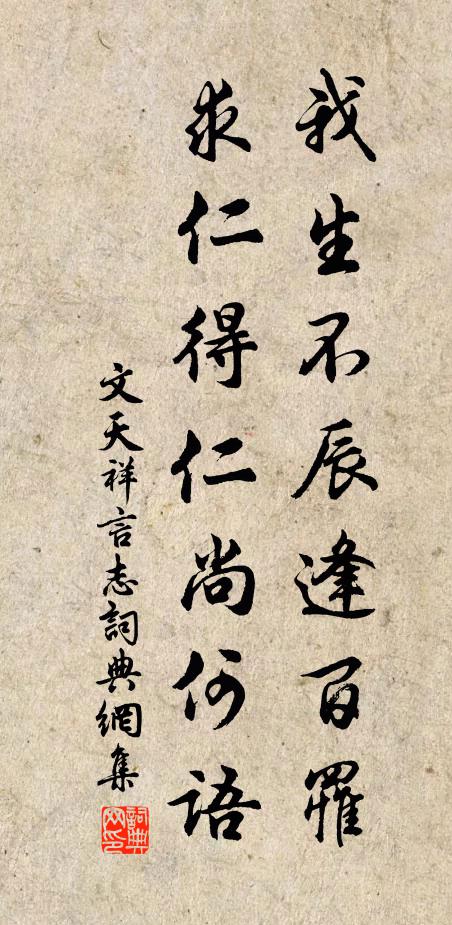 我生不辰逢百罹
求仁得仁尚何語
文天祥言志詞典網集
詞典网印